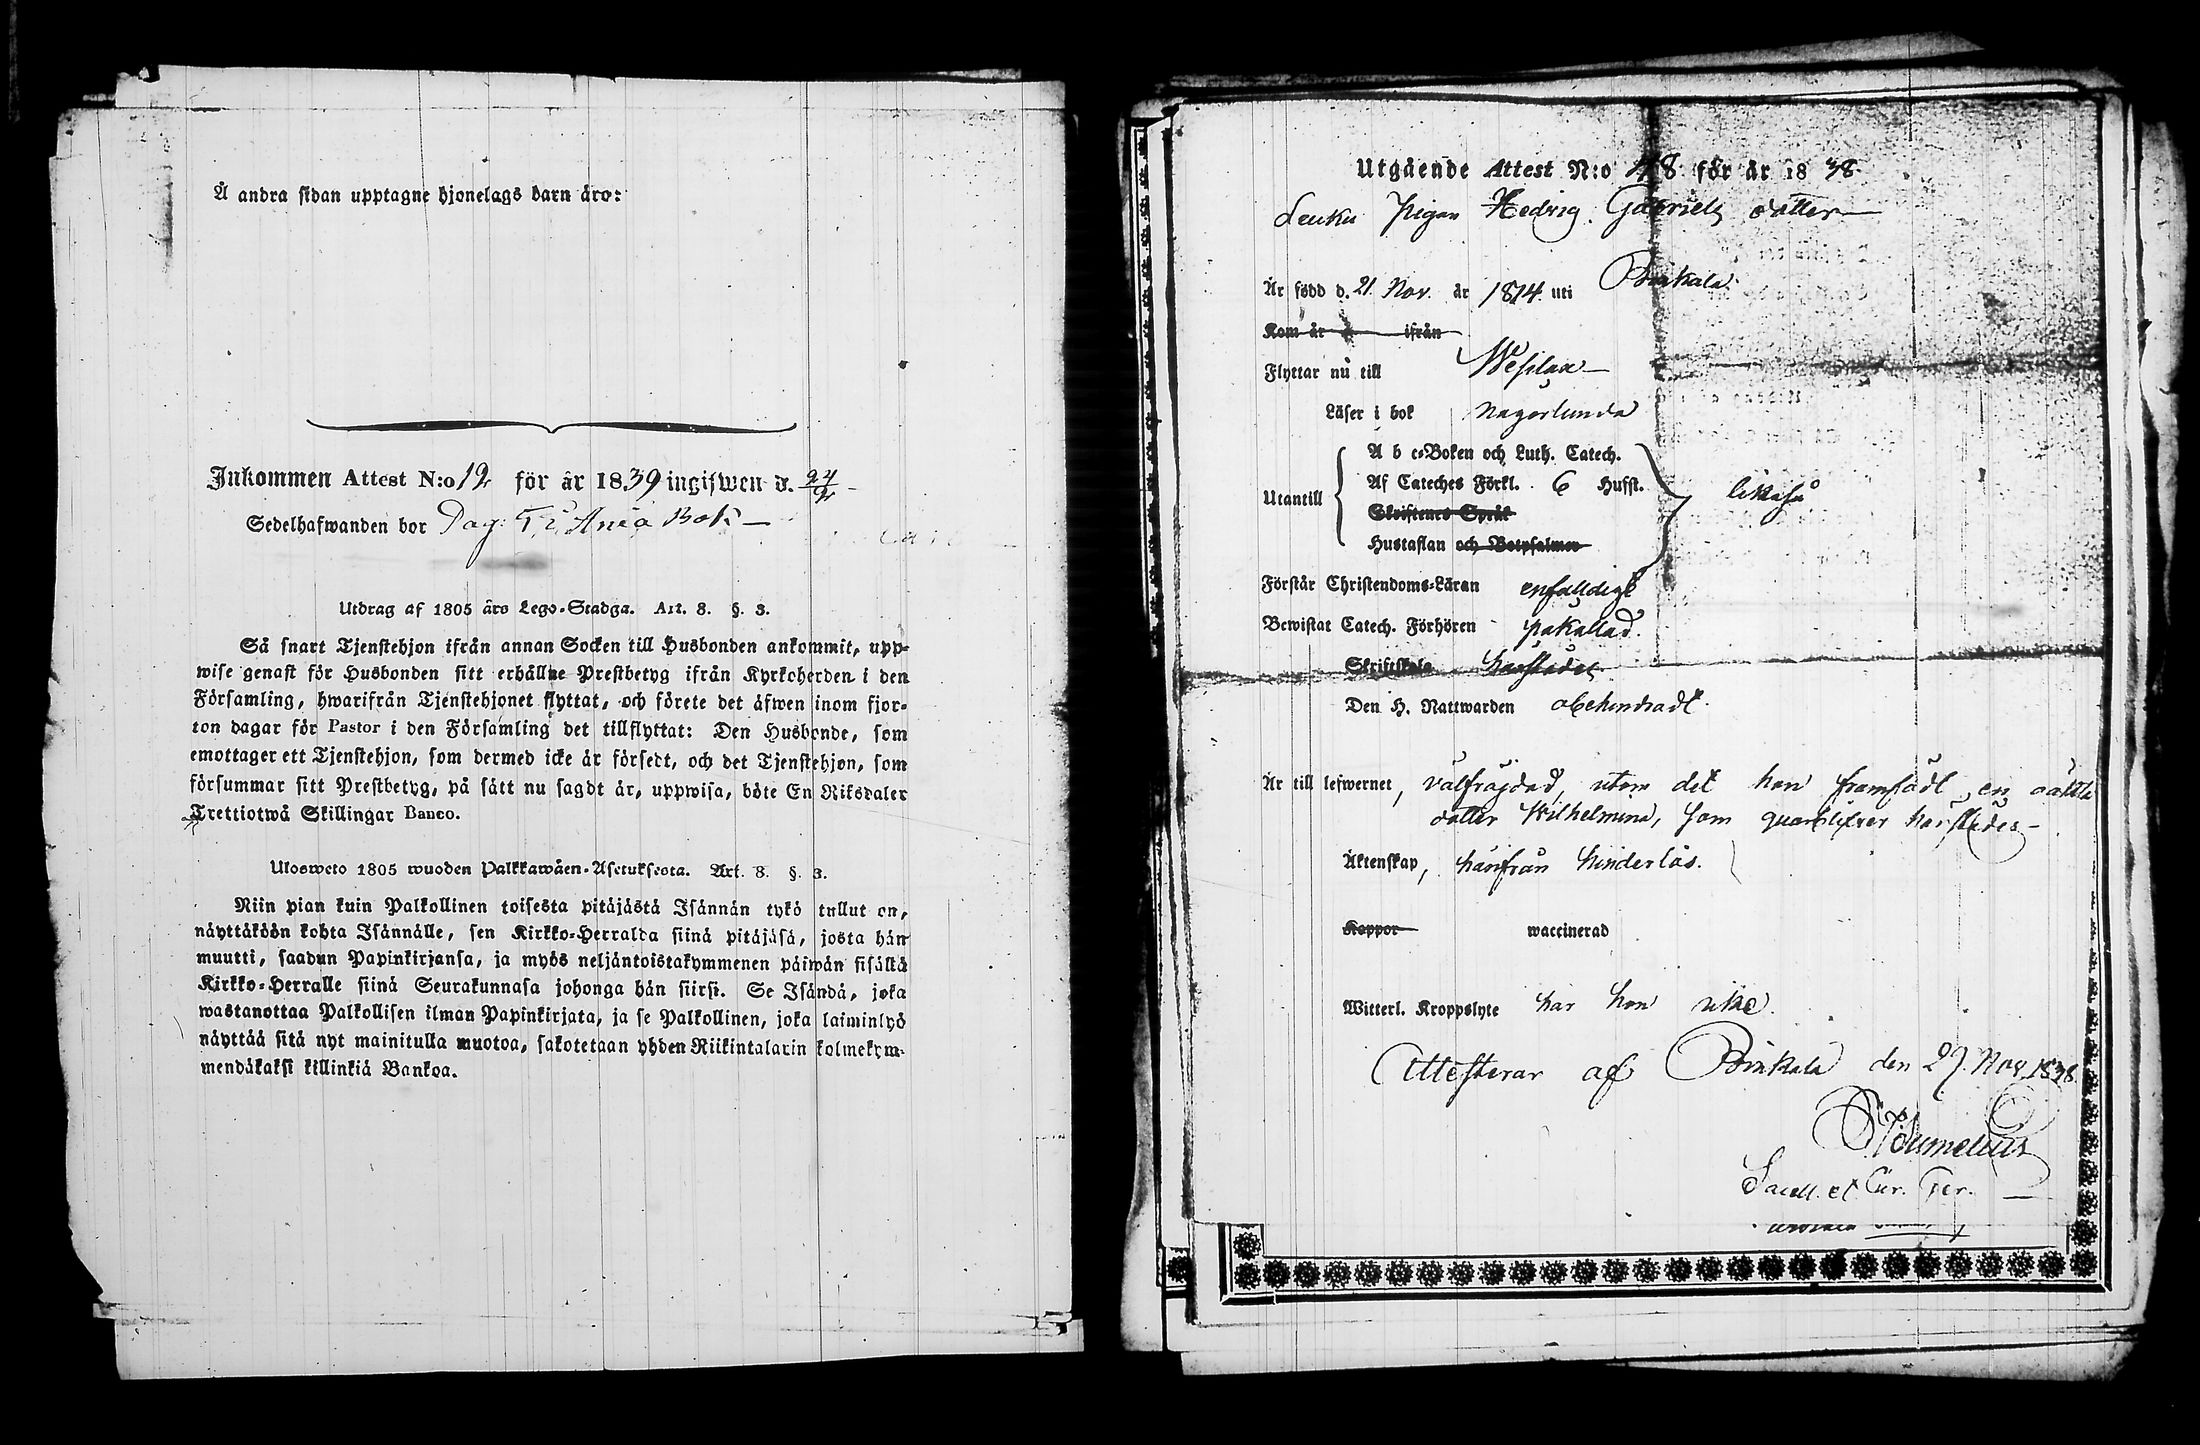 Å andra sidan upptagne hjonelags barn äro:
Inkommen Attest N:o 12 för år 1839 ingifwen d. 24/2
Sedelhafwanden bor Dag:
Utdrag af 1805 års Lego-Stadga. Art. 8. §. 3.
Så snart Tjenstehjon ifrån annan Socken till Husbonden ankommit, upp-
wise genast för Husbonden sitt erhållne Prestbetyg ifrån Kyrkoherden i den
Församling, hwarifrån Tjenstehjonet flyttat, och förete det äfwen inom fjor-
ton dagar för Pastor i den Församling det tillflyttat: Den Husbonde, som
emottager ett Tjenstehjon, som dermed icke är försedt, och det Tjenstehjon, som
försummar sitt Prestbetyg, på sätt nu sagdt är, uppwisa, böte En Riksdaler
Trettiotwå Skillingar Banco.
Ulosweto 1805 wuoden Palkkawäen-Asetuksesta. Art. 8. §. 3.
Niin pian kuin Palkollinen toisesta pitäjästä Isännän tykö tullut on,
näyttäköön kohta Isännälle, sen Kirkko-Herralda siinä pitäjäsä, josta hän
muutti, saadun Papinkirjansa, ja myös neljäntoistakymmenen päiwän sisällä
Kirkko-Herralle siinä Seurakunnasa johonga hän siirsi. Se Isändä, joka
wastanottaa Palkollisen ilman Papinkirjata, ja se Palkollinen, joka laiminlyö
näyttää sitä nyt mainitulla muotoa, sakotetaan yhden Riikintalarin kolmekym-
mendäkaksi killinkiä Bankoa.
Utgående Attest N:o 148 för år 1838
Pigan Hedvig Gabriels dotter
Är född d. 21 Nov. år 1814 uti Pinkala
Kom år ifrån
Flyttar nu till Wesilax
Läser i bok någorlunda
Utantill
A b c-Boken och Luth. Catech.
Af Cateches Förkl. 6 Hufst.
Skriftenes Språk
Hustaflan och Botpsalmer
likaså
Förstår Christendoms-Läran enfalldigt
Bewistat Catech. Förhören påkallad.
Skriftskola härstädes
Den H. Nattwarden obehindradt
Är till lefwernet, välfrägdad, utom det hon framfödt en oäkta
dotter Wilhelmina, som quarblifver härstädes
Äktenskap, härifrån hinderlös.
Koppor waccinerad
Witterl. Kroppslyte har hon icke.
Attesterar af Pinkala den 29. Nov. 1838
Sacell. et Cur. Ger.